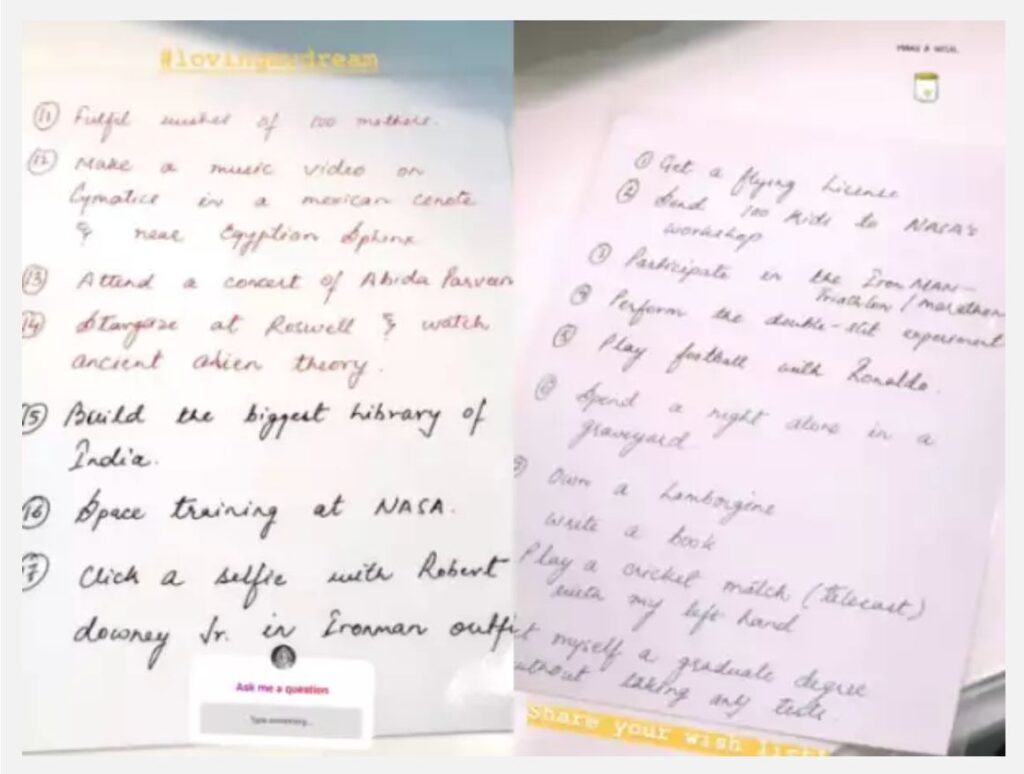 #lovingmydream
11 Fulfil wishes of 100 mothers.
12 Make a music video on
Cymatics in a mexican cenote
& near Egyption Sphinx
13 Attend a concert of Abida Parveen
14 Stargaze at Roswell & watch
ancient alien theory.
15 Build the biggest Library of
India.
16 Space training at NASA.
17 Click a selfie with Robert
downey Jr. in Ironman outfi
Ask me a question
Type something...
MAKE A WISH.
1 Get a flying License
2 Send 100 Kids to NASA's
workshop
3 Participate in the Iron MAN-
Triathlon / marathon
4 Perform the double-slit experiment
5 Play football with Ronaldo.
6 Spend a night alone in a
graveyard
7 Own a Lamborgine
write a book
Play a cricket match (telecast)
with my left hand
t myself a graduate degree
without taking any tests.
Share your wish list!